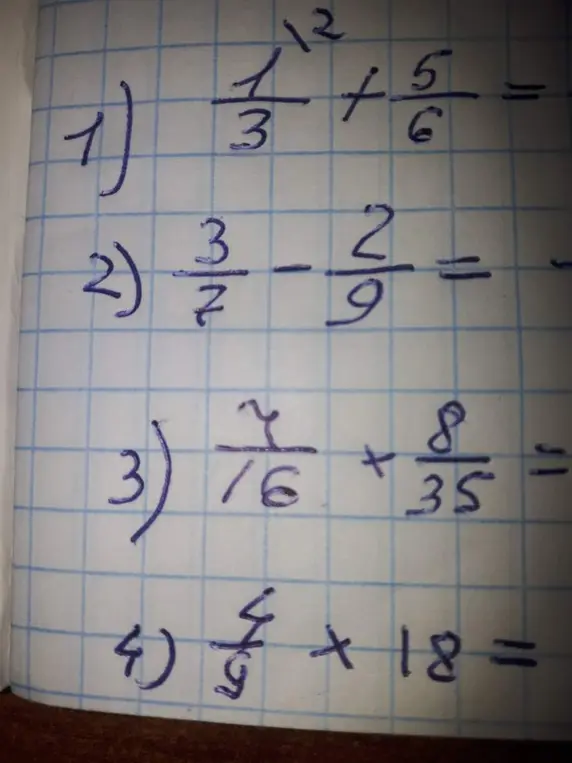 1) 1/3 \2 + 5/6 =
2) 3/7 - 2/9 =
3) 7/16 × 8/35 =
4) 4/9 × 18 =